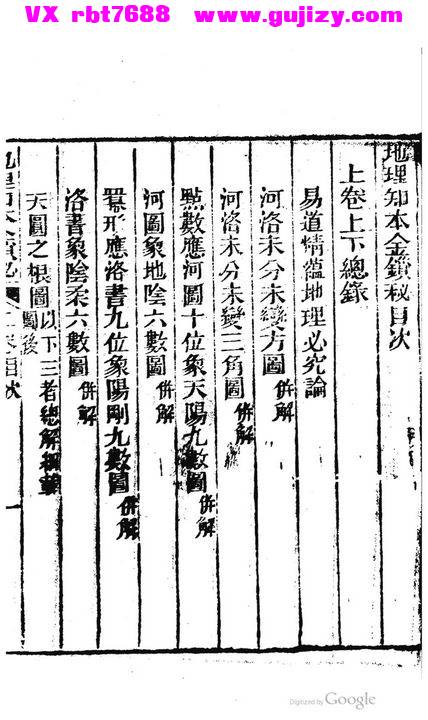 VX rbt7688 www.gujizy.com
地理知本金鎖秘目次
上卷上下總錄
易道精蘊地理必究論
河洛未分未變方圖 併解
河洛未分未變三角圖 併解
點數應河圖十位象天陽九數圖 併解
河圖象地陰六數圖 併解
羃形應洛書九位象陽剛九數圖 併解
洛書象陰柔六數圖 併解
天圓之根圖 以下三者總解細
圖後
地理知本金鎖秘 上卷目次 一
Digitized by Google